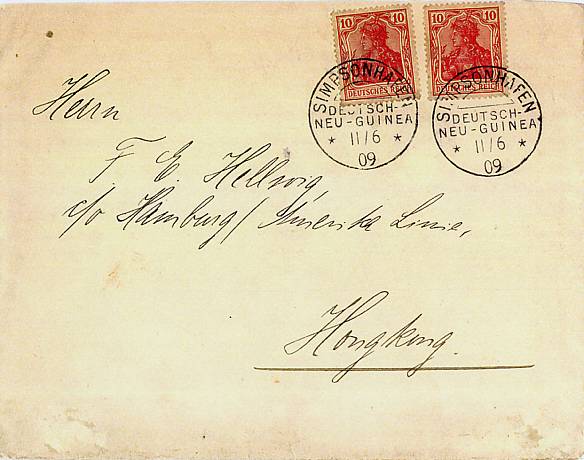 10 10 10 10
DEUTSCHES REICH DEUTSCHES REICH
SIMPSONHAFEN
DEUTSCH-
NEU-GUINEA
* 11/6 *
09
SIMPSONHAFEN
DEUTSCH-
NEU-GUINEA
* 11/6 *
09
Herrn
F. E. Hellwig,
c/o Hamburg/Amerika Linie,
Hongkong.